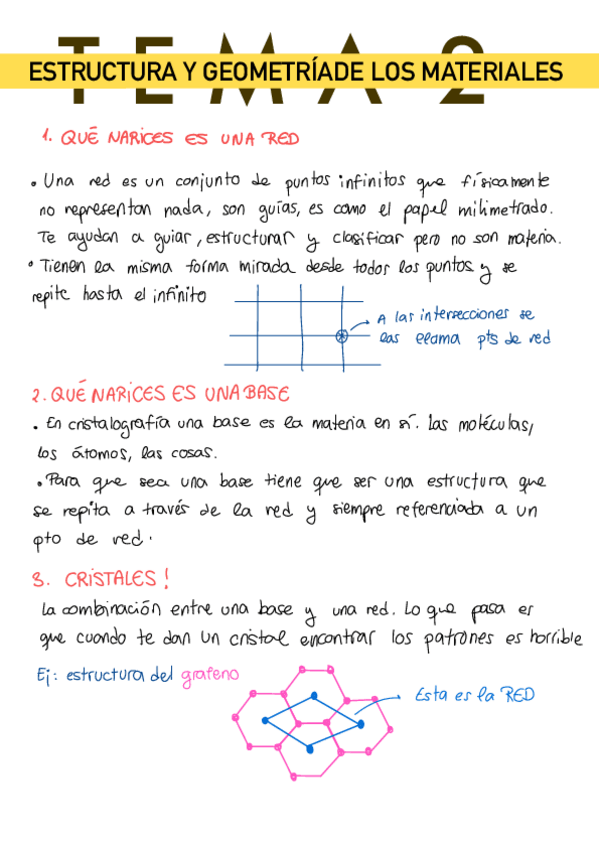 TEMA 2
ESTRUCTURA Y GEOMETRÍADE LOS MATERIALES
1. QUÉ NARICES ES UNA RED
• Una red es un conjunto de puntos infinitos que físicamente
no representan nada, son guías, es como el papel milimetrado.
Te ayudan a guiar, estructurar y clasificar pero no son materia.
• Tienen la misma forma mirada desde todos los puntos y se
repite hasta el infinito
A las intersecciones se
las llama pts de red
2. QUÉ NARICES ES UNA BASE
• En cristalografía una base es la materia en sí. las moléculas,
los átomos, las cosas.
• Para que sea una base tiene que ser una estructura que
se repita a través de la red y siempre referenciada a un
pto de red.
3. CRISTALES!
La combinación entre una base y una red. Lo que pasa es
que cuando te dan un cristal encontrar los patrones es horrible
Ej: estructura del grafeno
Esta es la RED